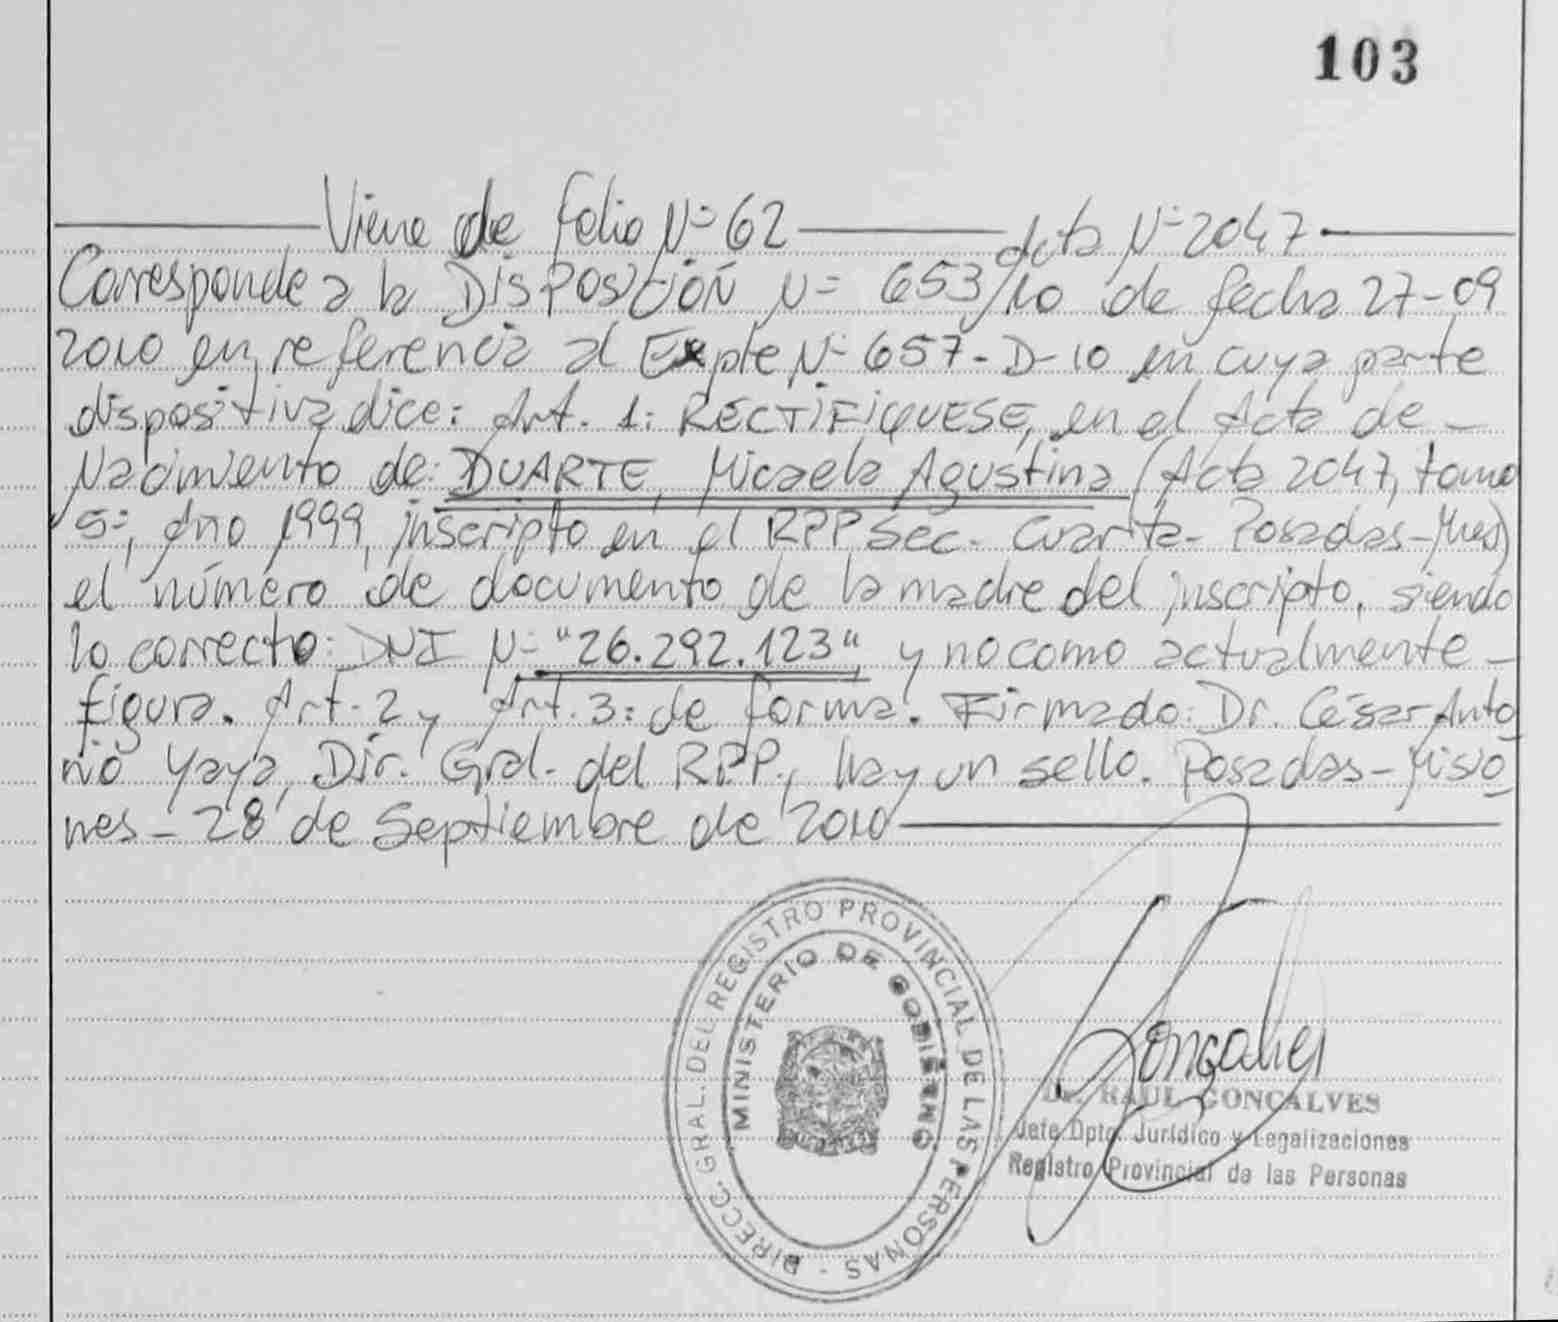 103
Viene de folio Nº 62 Acta Nº 2047.
Corresponde a la DISPOSICIÓN Nº 653/10 de fecha 27-09
2010 en referencia al Expte Nº 657-D-10 en cuya parte
dispositiva dice: Art. 1: RECTIFIQUESE, en el Acta de -
Nacimiento de: DUARTE, Micaela Agustina (Acta 2047, tomo
5º, Año 1999, inscripto en el RPP Sec. Cuarta- Posadas-Mnes)
el número de documento de la madre del inscripto, siendo
lo correcto: DNI Nº "26.292.123", y no como actualmente -
figura. Art. 2 y Art. 3: de forma. Firmado: Dr. César Anto
nio Yaya, Dir. Gral. del RPP., hay un sello. Posadas-Misio
nes - 28 de Septiembre de 2010
DIRECC. GRAL. DEL REGISTRO PROVINCIAL DE LAS PERSONAS -
MINISTERIO DE GOBIERNO
Gonçalves
Dr. RAUL GONÇALVES
Jefe Dpto. Jurídico y Legalizaciones
Registro Provincial de las Personas